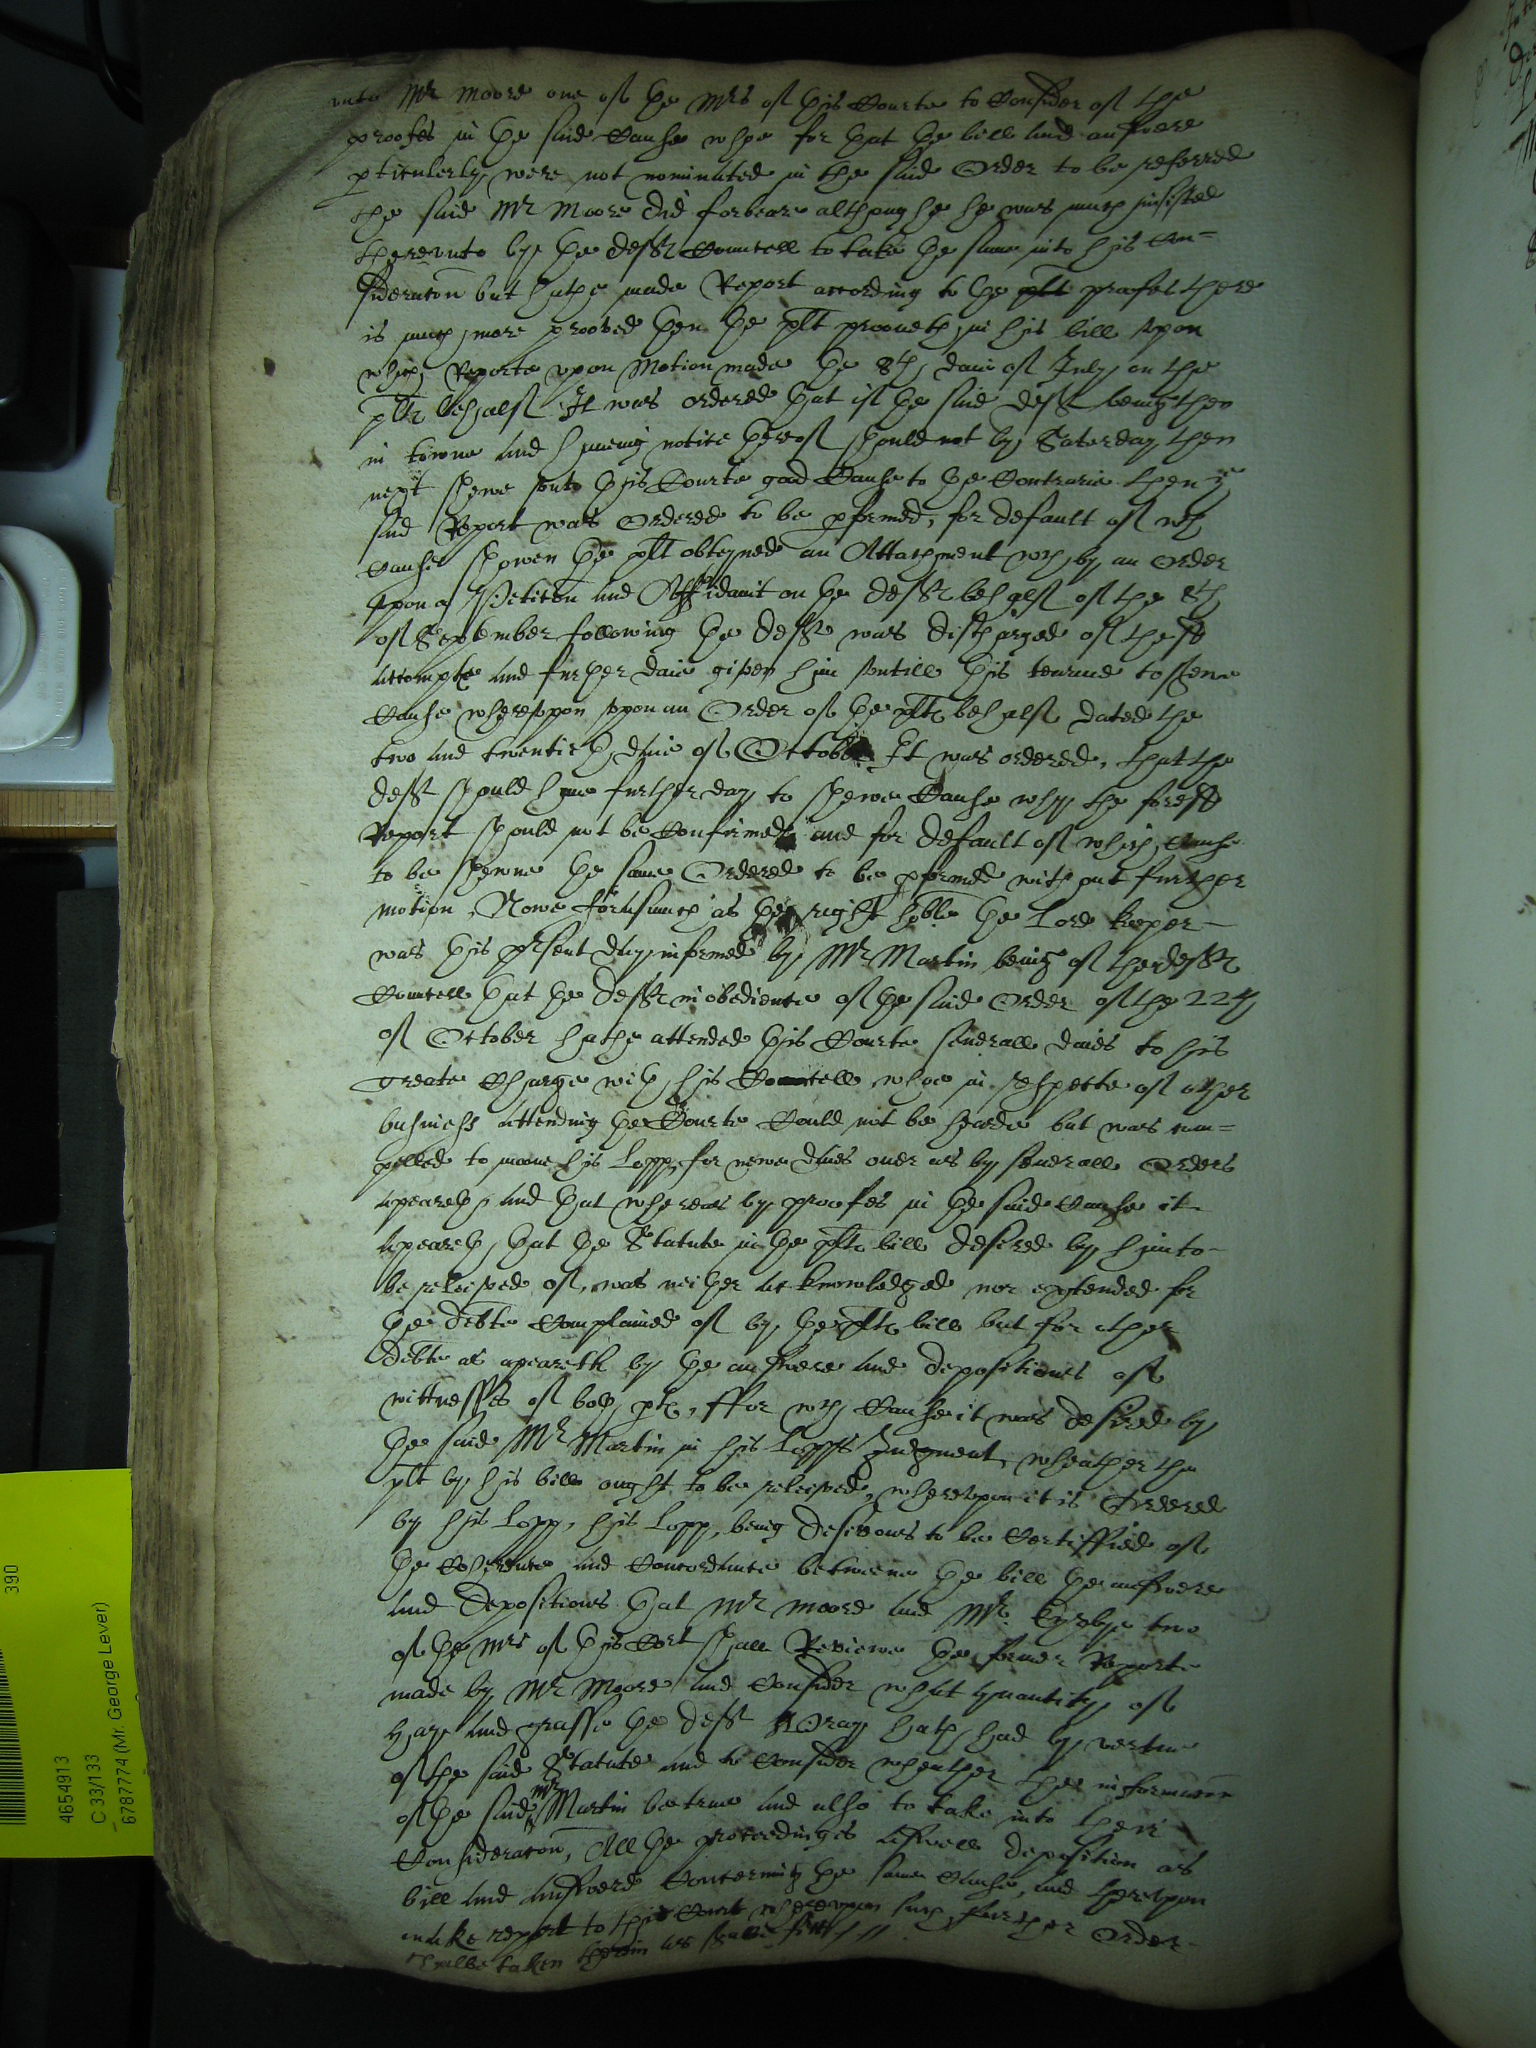 unto Mr Moore one of ye Mrs of this Courte to Consider of the
proofes in ye said Cause whoe for that ye bill and answere
pticulerly were not nominated in the said Order to be referred
the said Mr Moore did forbeare althoughe he was much insisted
therevnto by ye deftes Councell to take ye same into his Con=
sideracon but hathe made Report according to ye proofes there
is much more prooved then ye plt prooveth in his bill vpon
which Reporte vpon Motion made ye 8th daie of July on the
pltes behalfe It was ordered that if ye said deft being then
in towne and having notice thereof should not by Saterday then
next shewe vnto this Courte good Cause to ye Contrarie then ye
said Report was Ordered to be pformed, for default of wch
Cause shewen ye plt obteyned an Attachment wch by an Order
vpon a Petition and Affidavit on ye deftes behalfe of the 8th
of September following ye deft was discharged of these
attempte and further daie given him vntill this tearme to shewe
Cause wherevpon vpon an Order of ye pltes behalfe dated the
two and twentieth daie of October It was ordered, that the
deft should haue further day to shewe Cause why the foresd
Report should not be Confirmed and for default of which Cause
to be shewne ye same Ordered to be pformed without further
motion, Nowe forasmuch as ye right hoble ye Lord keeper
was this present day informed by Mr Martin being of the deftes
Councell that ye deft in obedience of ye said Order of the 22th
of October hathe attended this Courte severall daies to his
greate Charge with his Councell whoe in respecte of other
busines attending ye Courte Could not be hearde but was com=
pelled to moove his Lopp for newe daies over as by severall Orders
apeareth, and that whereas by proofes in ye said Cause it
apeareth that ye Statute in ye pltes bill desired by him to
be releived of, was neither acknowledged nor extended for
ye debte Complained of by ye pltes bill but for other
debte as apeareth by ye answere and depositions of
wittnesses of both ptes, ffor wch Cause it was desired by
ye said Mr Martin in his Lopps Judgment, wheather the
plt by his bill ought to be releived, wherevpon it is Ordered
by his Lopp, his Lopp, being desirous to be Certiffied of
ye Coherence and Concordance betweene ye bill ye answere
and depositions that Mr Moore and Mr Tyrby two
of ye Mrs of this Cort shall Reviewe ye former Reporte
made by Mr Moore and Consider what quantity of
hay and grasse ye deft Wray hath had by vertue
of the said Statute and to Consider wheather the informacon
of ye said Mr Martin be true and also to take into their
Consideracon, All ye proceedinges aswell deposition as
bill and answere Concerning ye same Cause, and therevpon
make report to this Court wherevpon such further Order
shalbe taken therein as shalbe fitt //
390
4654913
C 33/133
6787774 (Mr. George Lever)